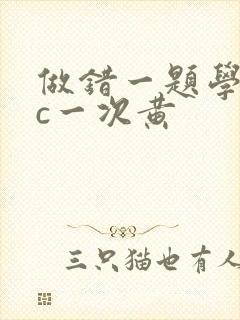 做错一题學
c一次黄
三只猫也有人